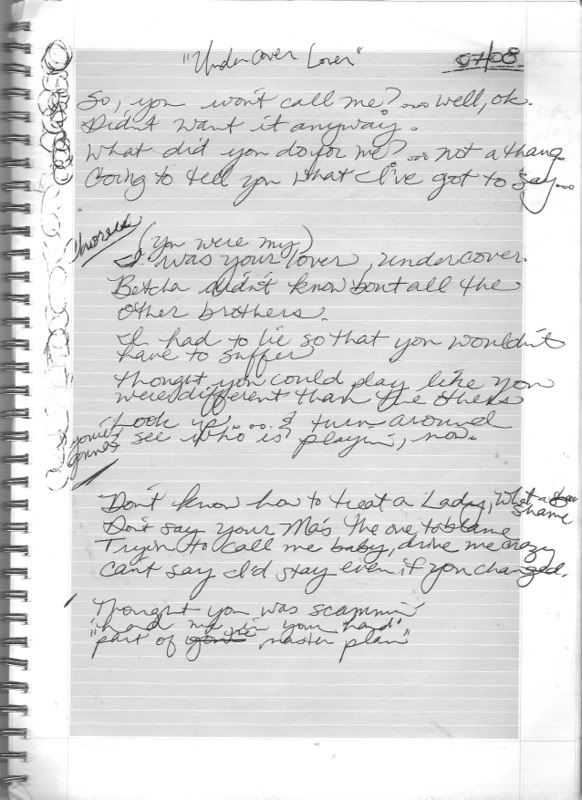 "Undercover Lover"
07/08
So, you won't call me?... well, ok.
Didn't want it anyway.
What did you do for me?... not a thang
Going to tell you what I've got to say...
Chorus
(You were my)
I was your lover, undercover.
Betcha didn't know bout all the
other brothers.
I had to lie so that you wouldn't
have to suffer
Thought you could play like you
were different than the others
Look up..... & turn around
you're gonna see who is playin', now.
Don't know how to treat a Lady, What a
shame
Don't say your Ma's the one to blame
Tryin to call me baby, drive me crazy
can't say I'd stay even if you changed.
Thought you was scammin'
"had me in your hand"
part of master plan"